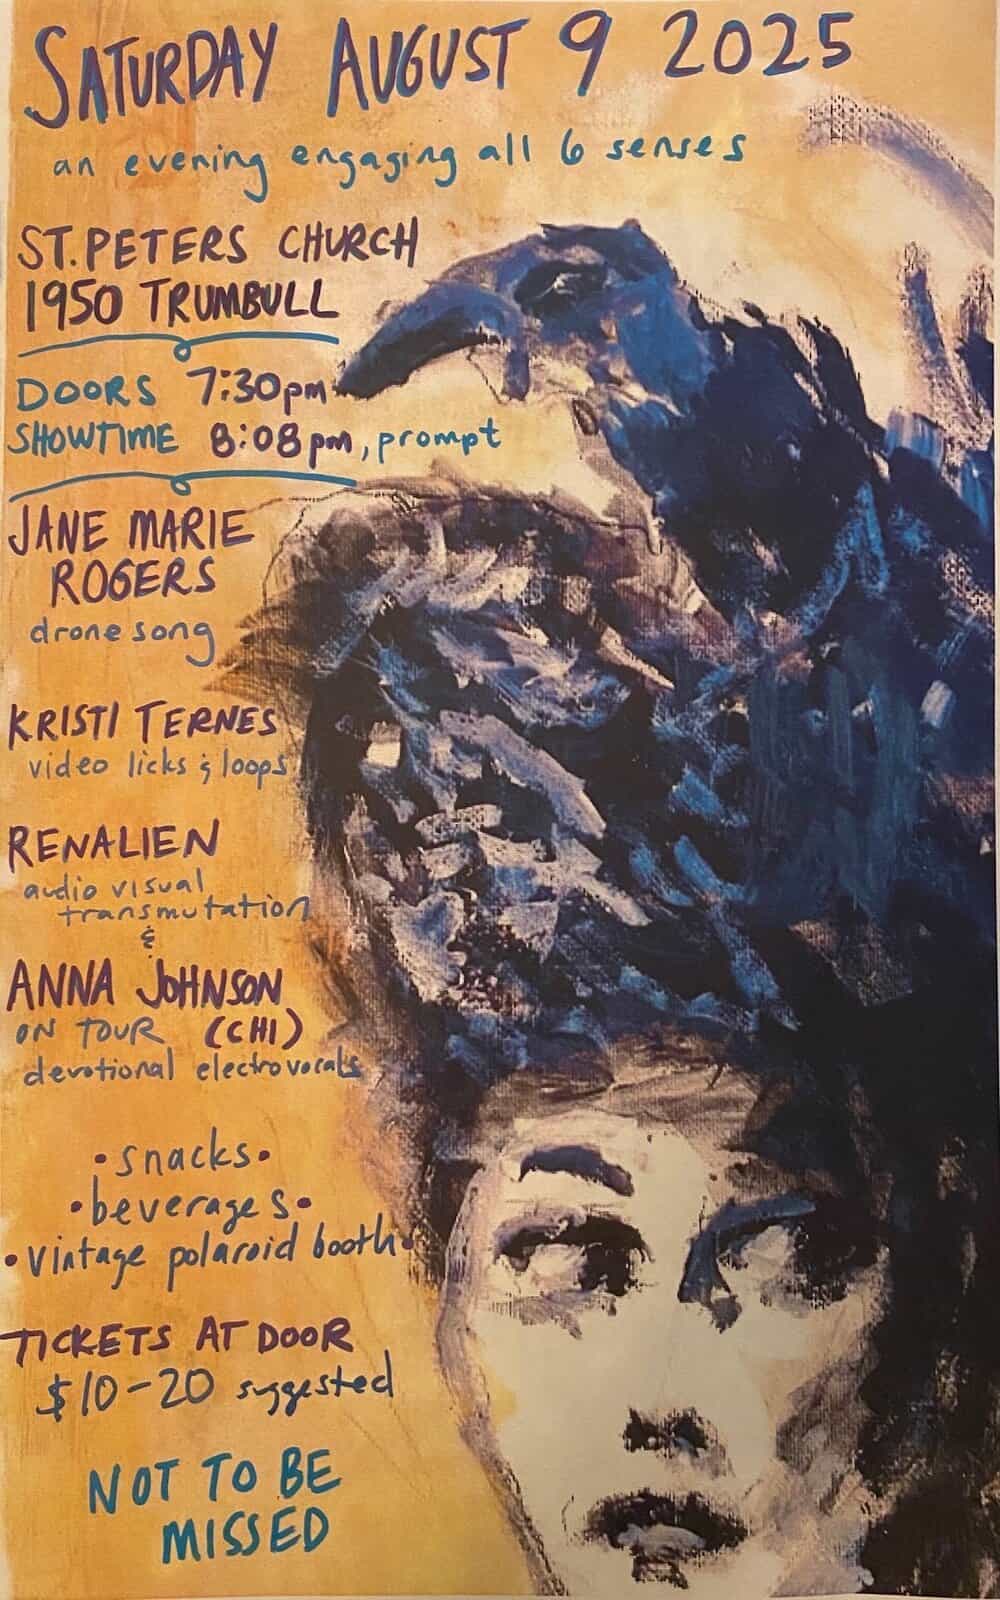 SATURDAY AUGUST 9 2025
an evening engaging all 6 senses
ST. PETERS CHURCH
1950 TRUMBULL
DOORS 7:30pm
SHOWTIME 8:08pm, prompt
JANE MARIE
ROGERS
drone song
KRISTI TERNES
video licks & loops
RENALIEN
audio visual
transmutation
&
ANNA JOHNSON
ON TOUR (CHI)
devotional electrovocals
• snacks •
• beverages •
• vintage polaroid booth •
TICKETS AT DOOR
$10-20 suggested
NOT TO BE
MISSED